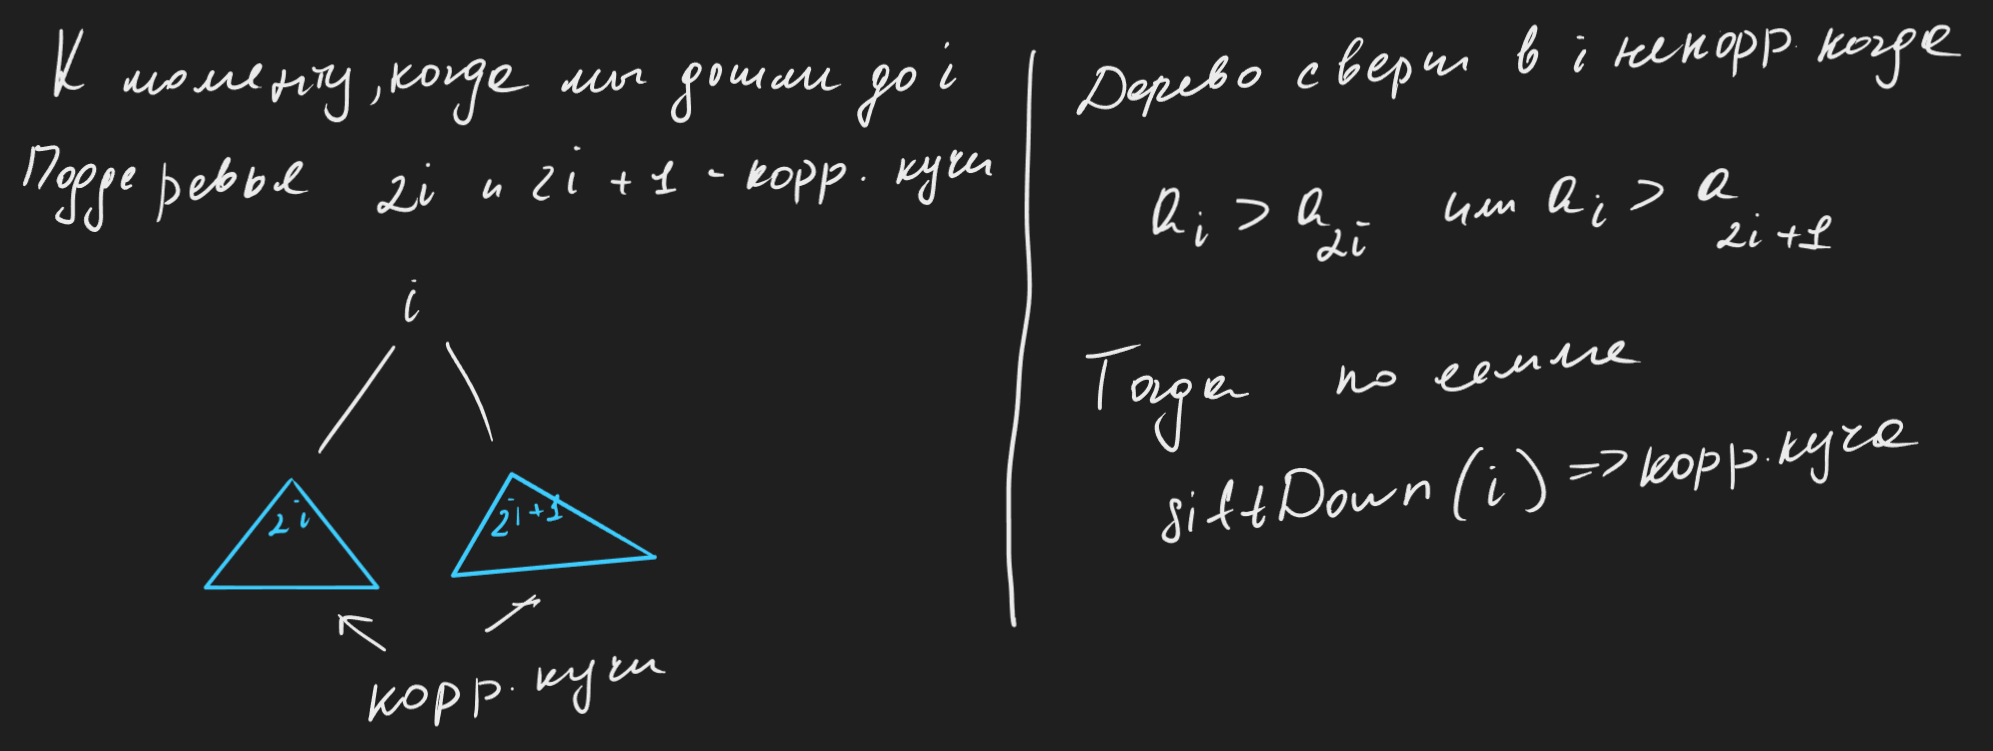 К моменту, когда мы дошли до i
Поддеревья 2i и 2i + 1 - корр. кучи
i
2i
2i+1
корр. кучи
Дерево с верш в i некорр. когда
a_i > a_{2i} или a_i > a_{2i+1}
Тогда по лемме
siftDown(i) => корр. куча